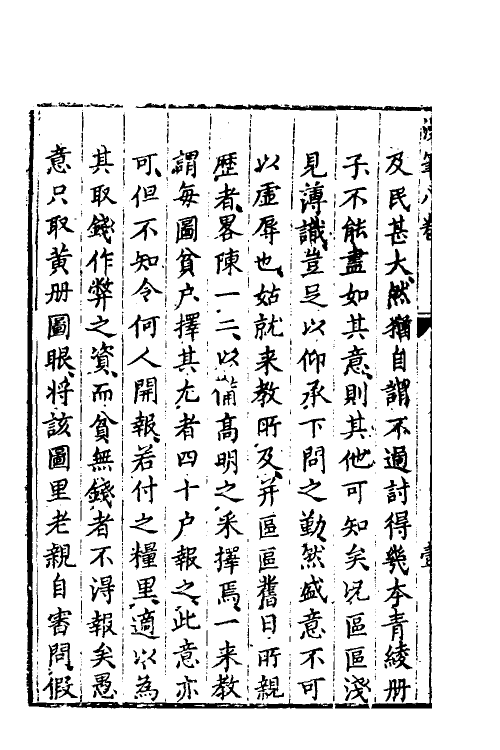 及民甚大然猶自謂不過討得幾本青綾册
子不能盡如其意則其他可知矣况區區淺
見薄識豈足以仰承下問之勤然盛意不可
以虛辱也姑就来教所及并區區舊日所親
歴者畧陳一二以備高明之采擇焉一来教
謂每圖貧户擇其尤者四十户報之此意亦
可但不知令何人開報若付之糧里適以為
其取錢作弊之資而貧無錢者不得報矣愚
意只取黄册圖眼将該圖里老親自審問假